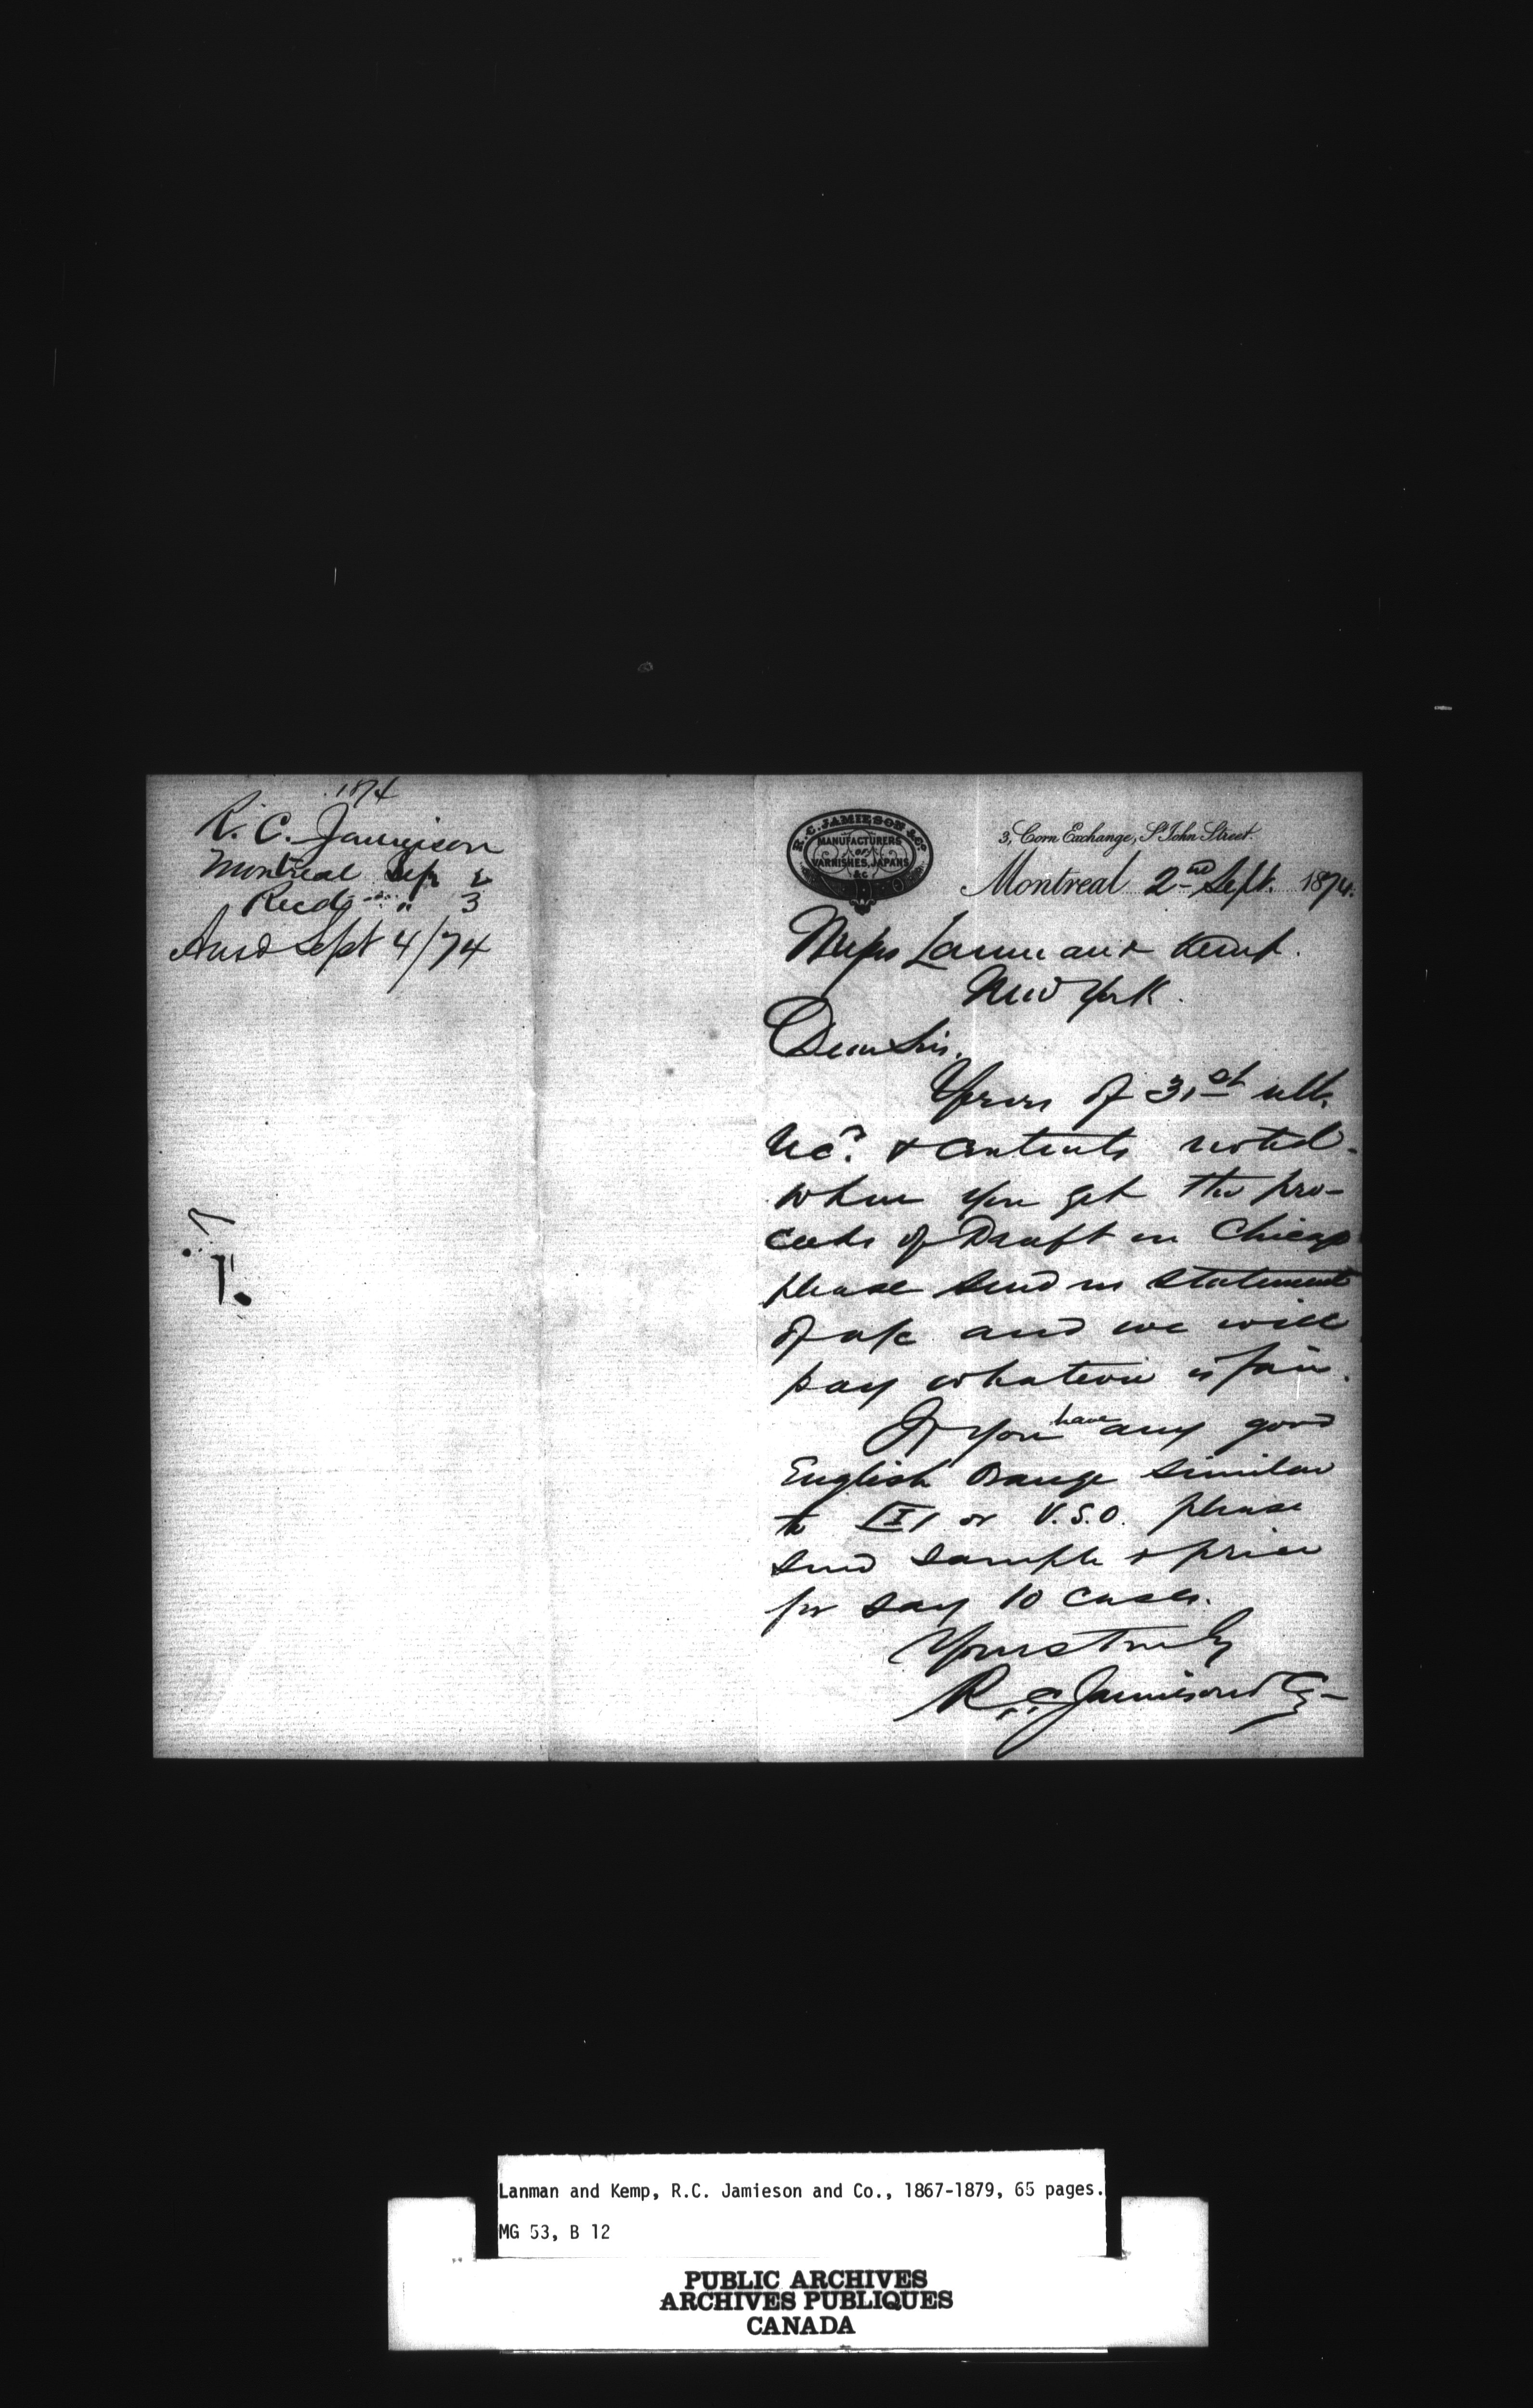 1874
R. C. Jamieson
Montreal Sep 2
Recd " 3
Ansd Sept 4/74
R.C. JAMIESON & Co.
MANUFACTURERS
OF
VARNISHES, JAPANS
&c
3, Corn Exchange, St John Street.
Montreal 2nd Sept. 1874.
Messrs Lanman & Kemp.
New York.
Dear Sirs,
Yours of 31st ult.
recd. & contents noted.
When you get the pro-
ceeds of Draft on Chicago
please send us statement
of a/c and we will
pay whatever is fair.
If you have any good
English Orange similar
to or V.S.O. please
send sample & price
for say 10 cases.
Yours truly
R. C. Jamieson & Co
Lanman and Kemp, R.C. Jamieson and Co., 1867-1879, 65 pages.
MG 53, B 12
PUBLIC ARCHIVES
ARCHIVES PUBLIQUES
CANADA